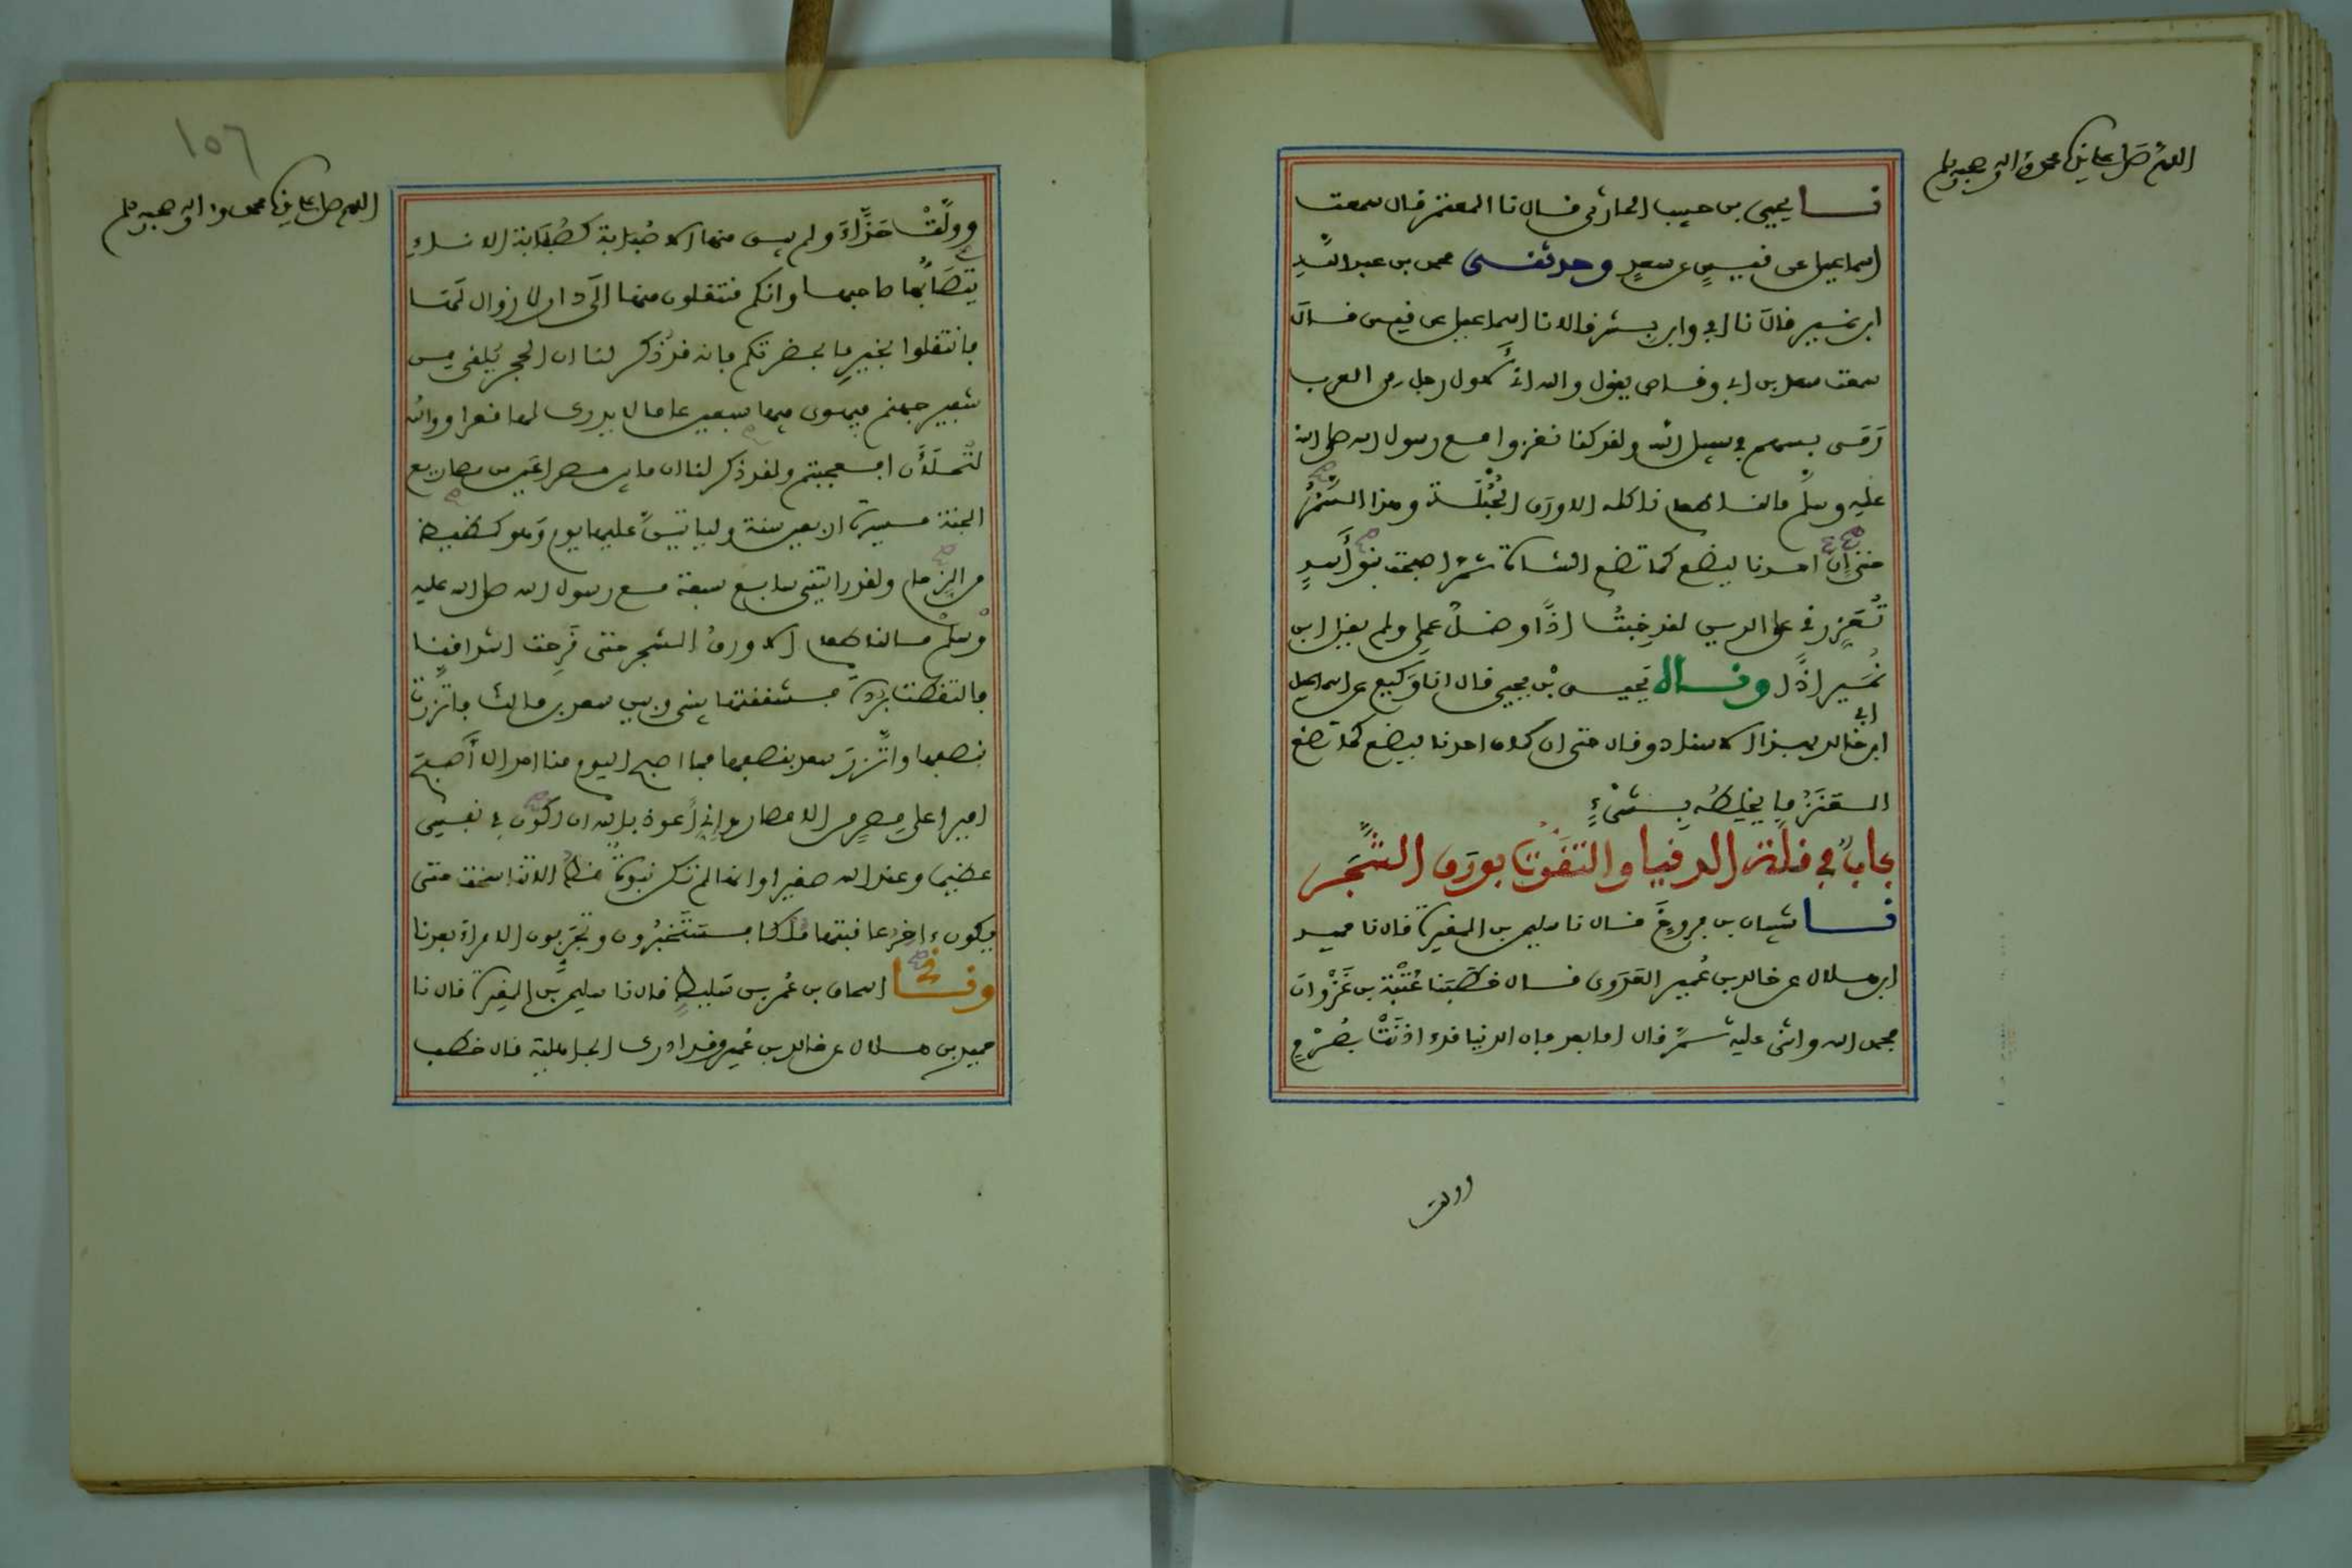 اللهم صل على سيدنا محمد وءاله وصحبه وسلم
نا يحيى بن حبيب الحارثى قال نا المعتمر قال سمعت
اسماعيل عن قيس عن سعد وحدثنى محمد بن عبد الله
ابن نمير قال نا ابى وابن بشر قالا نا اسماعيل عن قيس قال
سمعت سعد بن ابى وقاص يقول والله انى لأول رجل من العرب
رمى بسهم فى سبيل الله ولقد كنا نغزوا مع رسول الله صلى الله
عليه وسلم مالنا طعام ناكله الا ورق الحُبْلة وهذا السَّمُرُ
حتى إنّ احدنا ليضع كما تضع الشاة ثمّ اصبحت بنو أسدٍ
تُعَزِّرنى على الدين لقد خِبْتُ اذًا وضلّ عملى ولم يقل ابن
نُمَير اذًا وقال يحيى بْن يحيى قال انا وكيع عن اسماعيل
ابن ابى خالد بهذا الاسناد وقال حتى ان كان احدنا ليضع كما تضع
العَنْزُ ما يخلِطُه بِشىْءٍ
بابٌ فى قلة الدنيا والتقوت بورق الشَّجر
نا شيبان بن فروخَ قال نا سليمن بن المغيرة قال نا حميد
ابن هلال عن خالد بن عُمير العَدَوى قال خطبَنا عُتْبة بن غَزْوان
فحمد الله واثنى عليه ثمّ قال اما بعد فان الدنيا قد ءاذنَتْ بصُرْمٍ
وولت
١٥٦
اللهم صل على سيدنا محمد وءاله وصحبه وسلم
وولَّتْ حَذَّاءَ ولم يبق منها الا صُبَابة كصُبَابة الاناء
يتصَابُّها صاحبها وانكم منتقلون منها الى دار لا زوال لها
فانتقلوا بخيرِ ما بحضرتكم فانه قد ذُكر لنا ان الحجر يُلقى من
شفير جهنم فيهوى فيها سبعين عاما لا يدرى لها قعرا ووالله
لتُملَأَن افعجبتم ولقد ذكر لنا ان ما بين مصراعَين من مصاريع
الجنة مسيرة اربعين سنة ولياتينّ عليها يوم وهو كظيظ
من الزحام ولقد رايتنى سابع سبعة مع رسول الله صلى الله عليه
وسلم مالنا طعام الا ورقُ الشجر حتى قَرِحت اشداقنا
فالتقطت بردة فشققتها بينى وبين سعد بن مالك فاتزرت
بنصفها واتَّزرَ سعد بنصفها فما اصبح اليوم منا احد الا أصبحَ
اميرا على مصرٍ من الامصار وإنى أعوذ بالله ان اكون فى نفسى
عظيما وعند الله صغيرا وانها لم تكن نبوةٌ قط الا تناسخت حتى
يكون ءاخرُ عاقبتها ملكا فستَخبُرُون وتجَرِّبون الامراء بعدنا
ونا اسحاق بن عُمر بن سَليط قال نا سليمن بن المغيرة قال نا
حميد بن هلال عن خالد بن عُمير وقد ادرك الجاهلية قال خطب